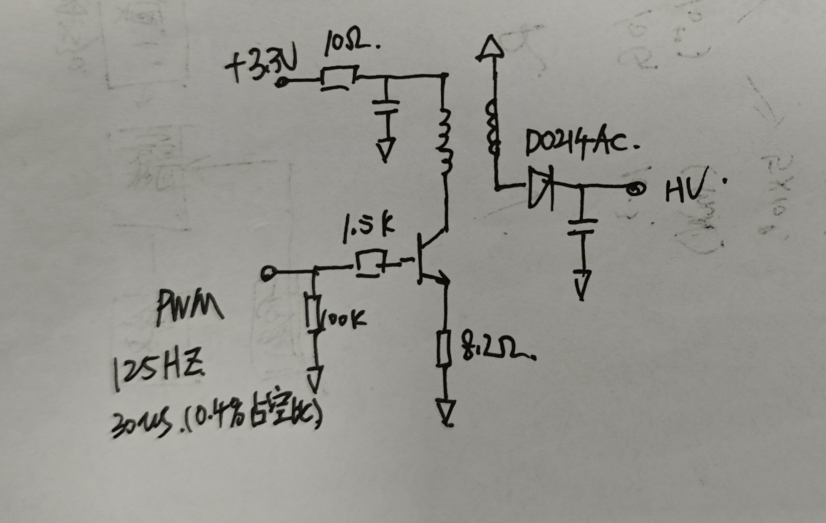 10Ω.
+3.3V
DO214AC.
HV.
1.5K
PWM
100K
8.2Ω.
125HZ
30us.(0.4%占空比)